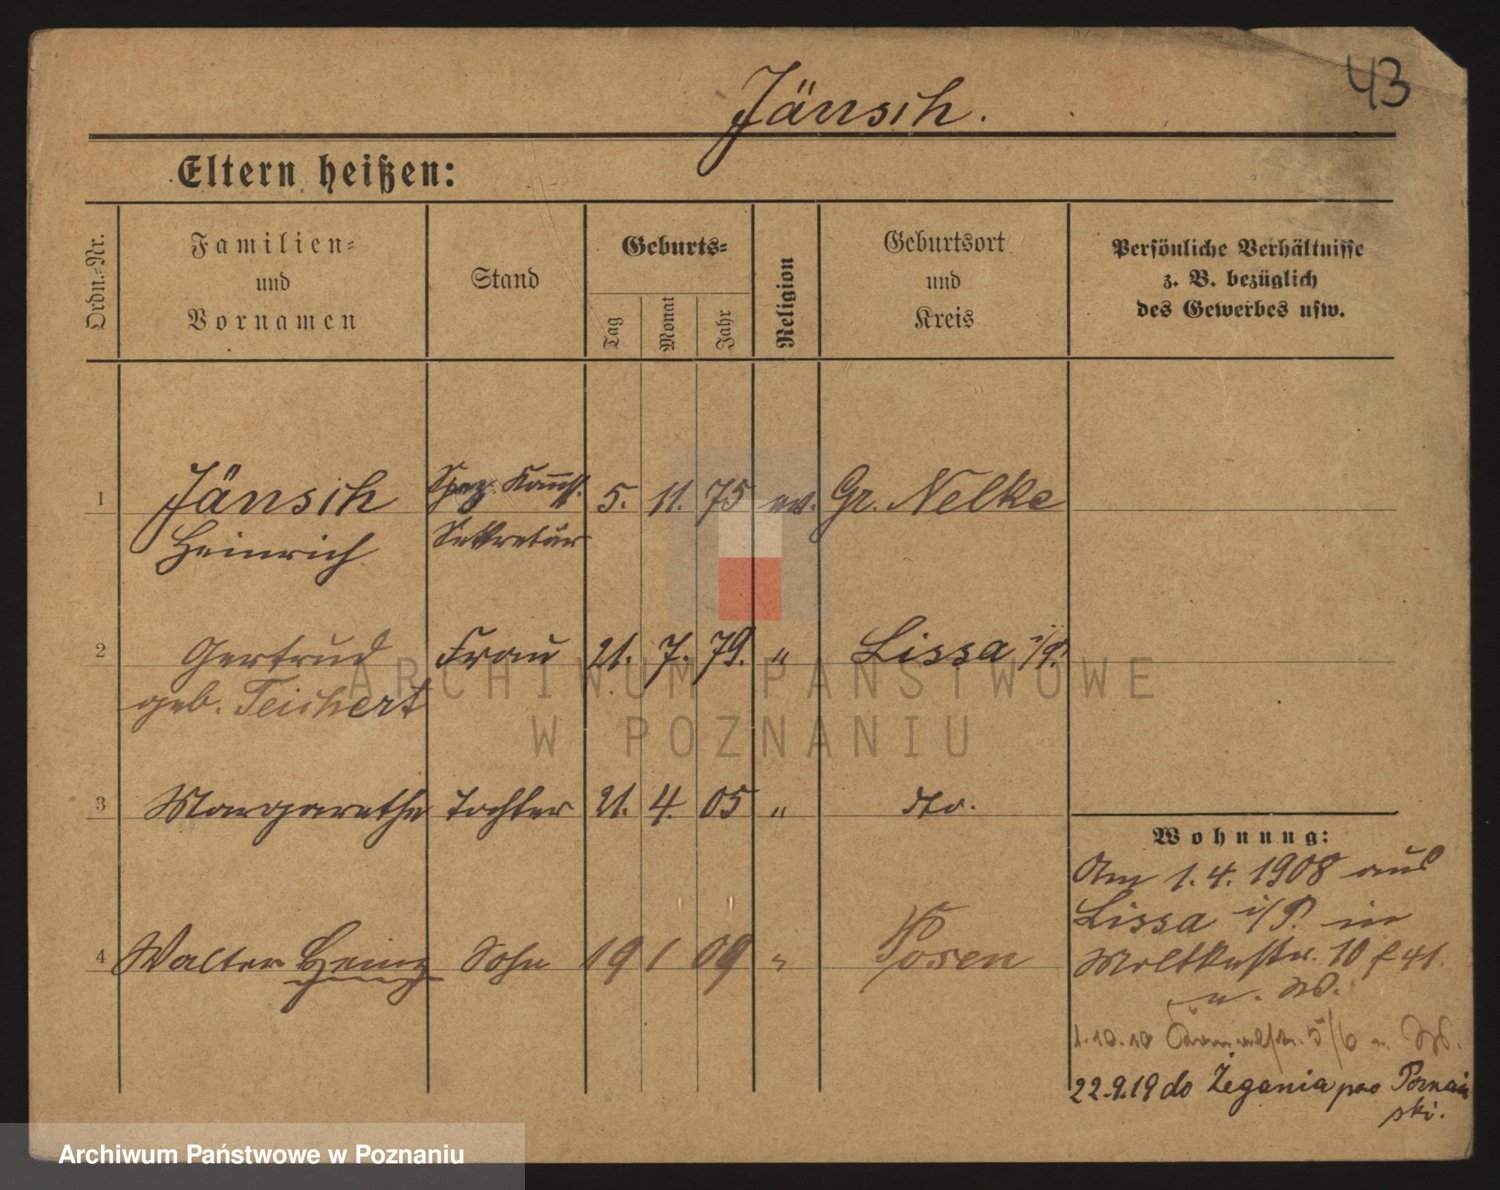 43
Jänsch.
Eltern heißen:
Ordn.-Nr.
Familien-
und
Vornamen
Stand
Geburts-
Tag
Monat
Jahr
Religion
Geburtsort
und
Kreis
Persönliche Verhältnisse
z. B. bezüglich
des Gewerbes usw.
1 Jänsch Spez. Komss. 5. 11. 75 ev. Gr. Nelke
Heinrich Sekretär
2 Gertrud Frau 21. 7. 79. " Lissa i/P.
geb. Teichert
3 Margarethe Tochter 21. 4. 05 " dto.
4 Walter Heinz Sohn 19 1 09 " Posen
Wohnung:
Am 1.4.1908 aus
Lissa i/P. in
Moltkestr. 10 f 41.
u. W.
1.10.10 5/6 u. W.
22.9.19 do Żegania pow Poznań
ski.
ARCHIWUM PAŃSTWOWE
W POZNANIU
Archiwum Państwowe w Poznaniu